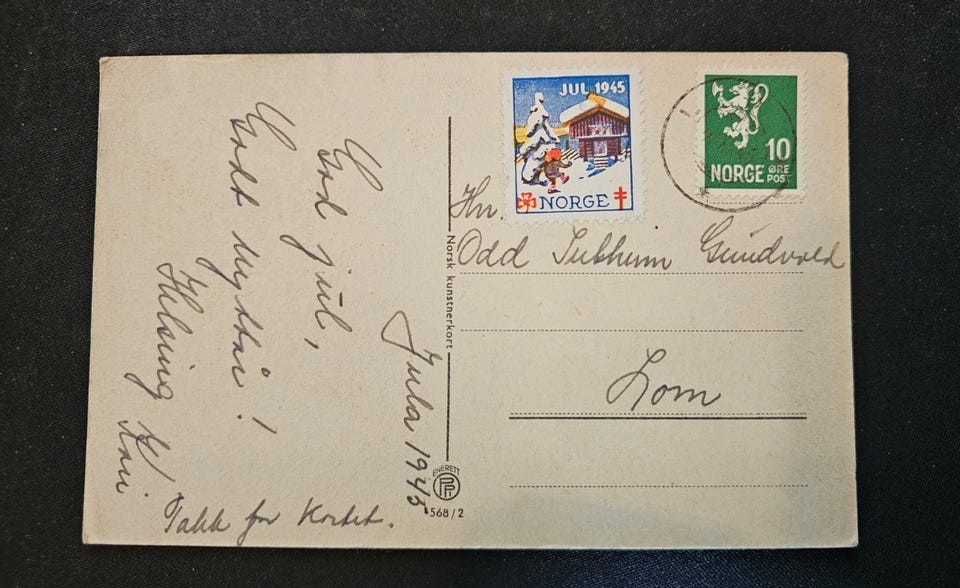 God jul,
Godt nyttår!
Helsing
Kari
Takk for kortet.
Jula 1945
Norsk kunstnerkort
ENERETT
568/2
JUL 1945
NORGE
10
NORGE ØRE POST
Hr.
Odd Gundvold
Lom